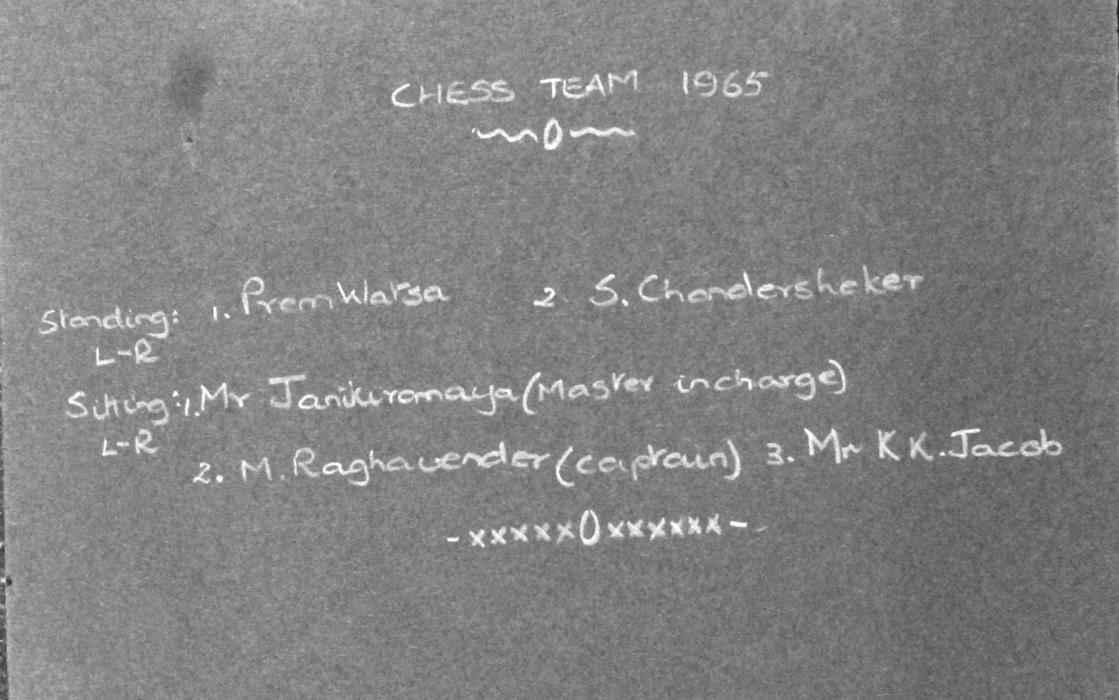 CHESS TEAM 1965
~~0~~
Standing: 1. Prem Watsa 2. S. Chandersheker
L-R
Sitting: 1. Mr Janikiramaya (Master incharge)
L-R
2. M. Raghavender (captain) 3. Mr K K. Jacob
-xxxxx0xxxxxx--